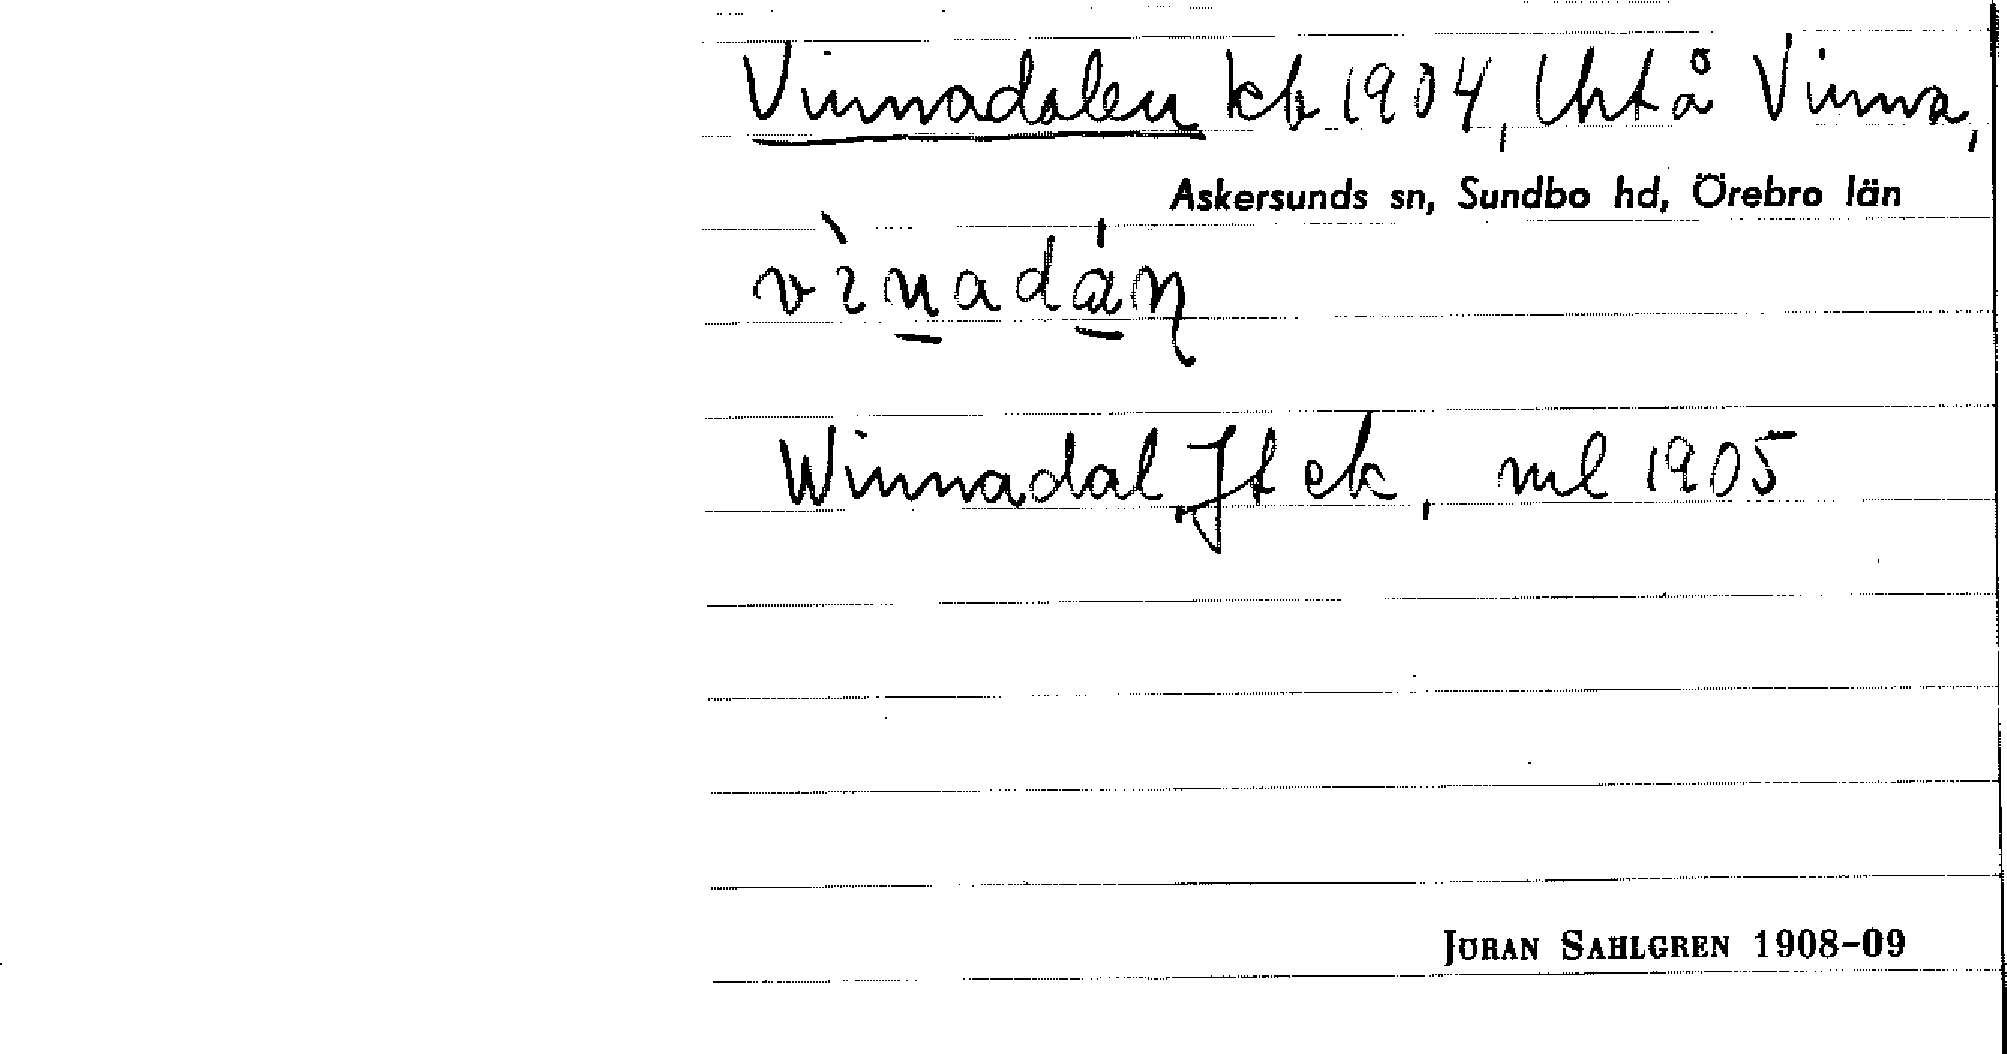 Vinnadalen kb 1904, Uht å Vinna,
Askersunds sn, Sundbo hd, Örebro län
vìnadán
Winnadal Jt ek, ml 1905
JÖRAN SAHLGREN 1908-09